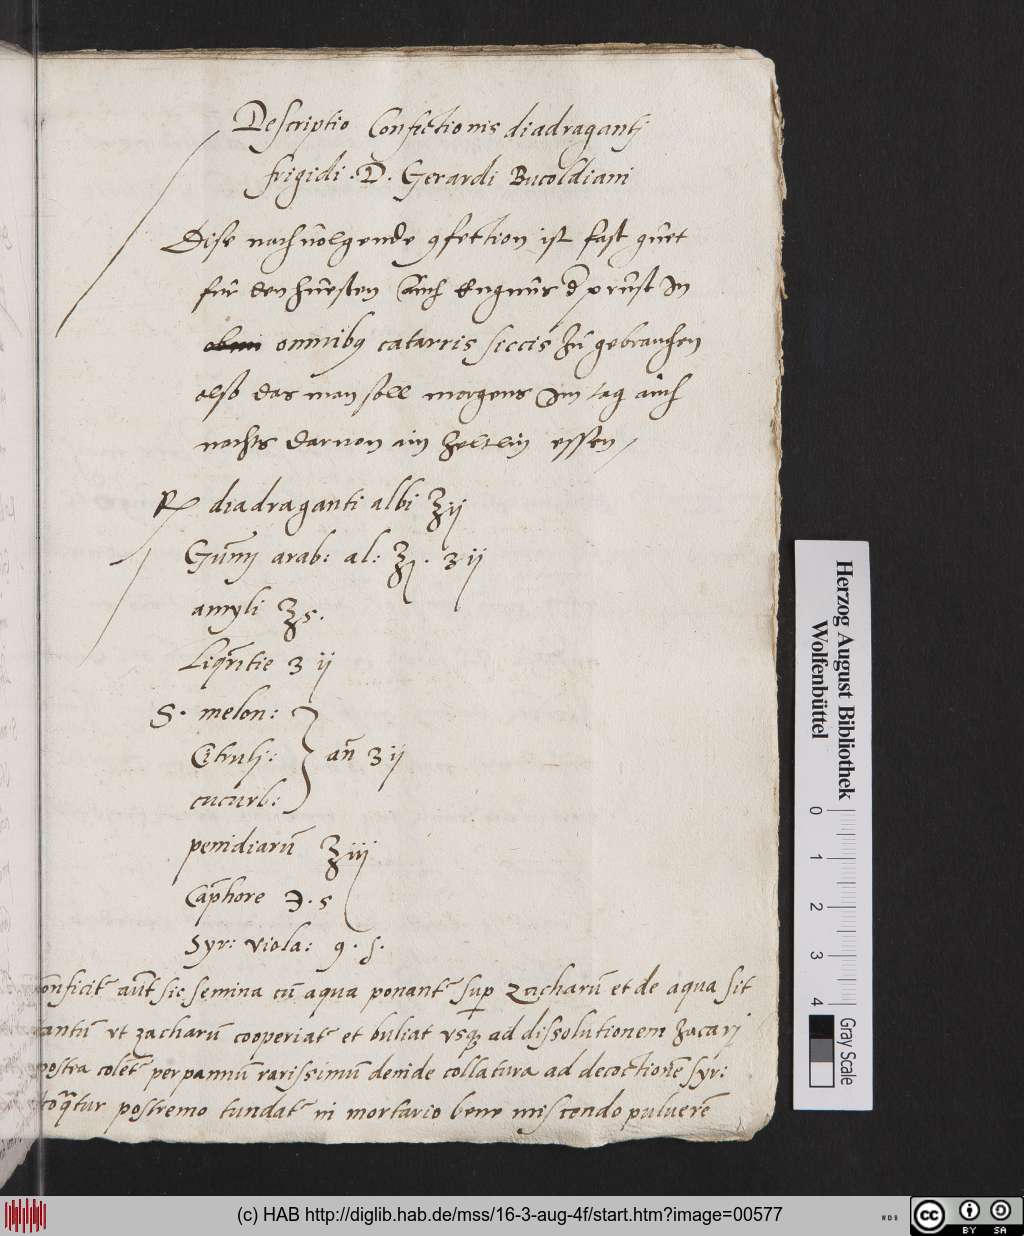 Descriptio Confectionis diadragantj
frigidi · D · Gerardi Bucoldiani
Dise nachuolgende 9fection ist fast guet
für den huesten auch Engnus d prust In
omnibq catarris siccis zu gebrauchen
also das man soll morgens Im tag auch
nachts daruon ain zeltlin essen
℞ diadraganti albi ℥ij
Gūmj arab: al: ℥j · ʒ ij
amyli ℥ s ·
Liqritie ʒ ij
S · melon:
Citrulj: an̄ ʒ ij
cucurb:
penidiarū ℥iij
Cāphore ℈ · s
Syr: viola: q · s ·
onficit aut sic semina cū aqua ponant sup zacharū et de aqua sit
tantū vt zacharū cooperiat et buliat vsq ad dissolutionem zacarj
postea colet per pannū rarissimū deinde collatura ad decoctionē syr:
coqtur postremo tundat in mortario bene miscendo puluerē
Herzog August Bibliothek
Wolfenbüttel
0 1 2 3 4
Gray Scale
(c) HAB http://diglib.hab.de/mss/16-3-aug-4f/start.htm?image=00577
WDB
cc BY SA